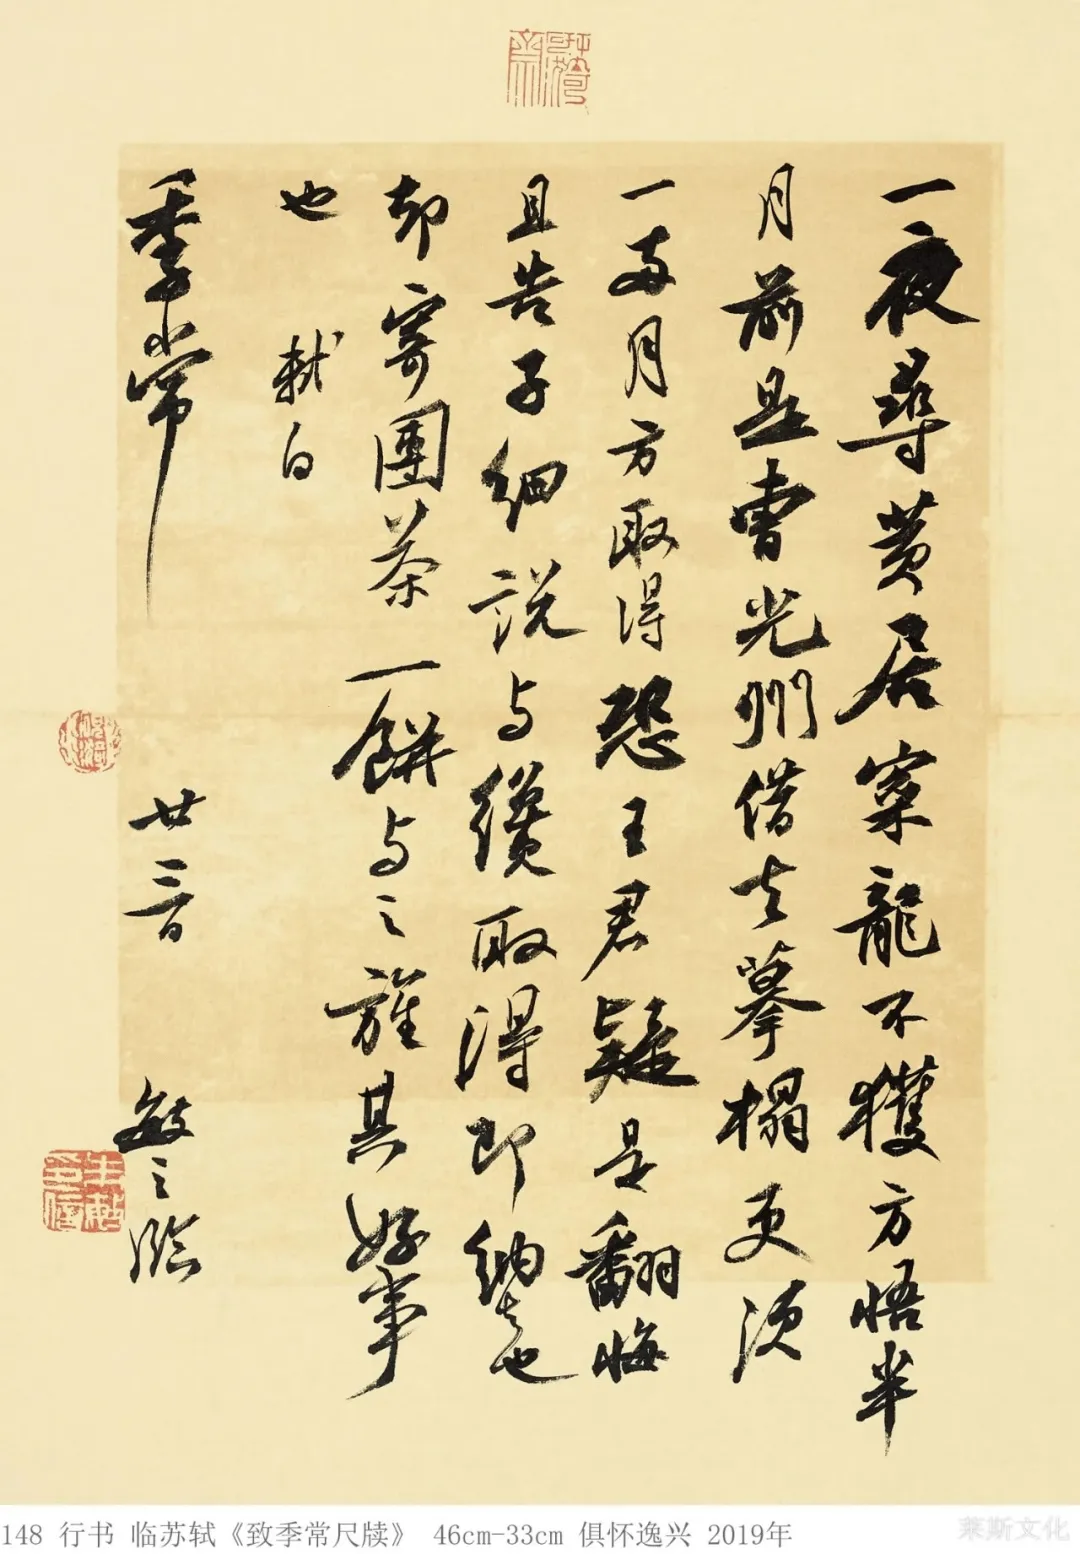 一夜尋黄居寀龍不獲方悟半
月前是曹光州借去摹搨更須
一两月方取得恐王君疑是翻悔
且告子細説与纔取得即納去也
却寄團茶一餅与之旌其好事
也 軾白
季常
廿三日
敏之臨
148 行书 临苏轼《致季常尺牍》 46cm-33cm 俱怀逸兴 2019年
莱斯文化